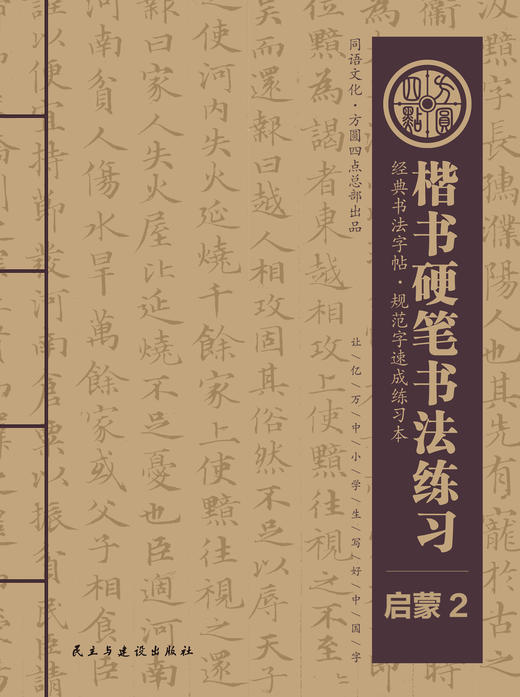 方圓
四點
楷书硬笔书法练习
经典书法字帖·规范字速成练习本
启蒙 2
同语文化·方圆四点总部出品
让/亿/万/中/小/学/生/写/好/中/国/字
民主与建设出版社
汲黯字長孺濮陽人也其先有寵於古
位黯為謁者東越相攻上使黯往視之不至
吴而還報曰越人相攻固其俗然不足以辱天子
使河内失火延燒千餘家上使黯往視之
報曰家人失火屋比延燒不足憂也臣過河南
河南貧人傷水旱萬餘家或父子相食臣
謹以便宜持節發河南倉粟以振貧民臣請